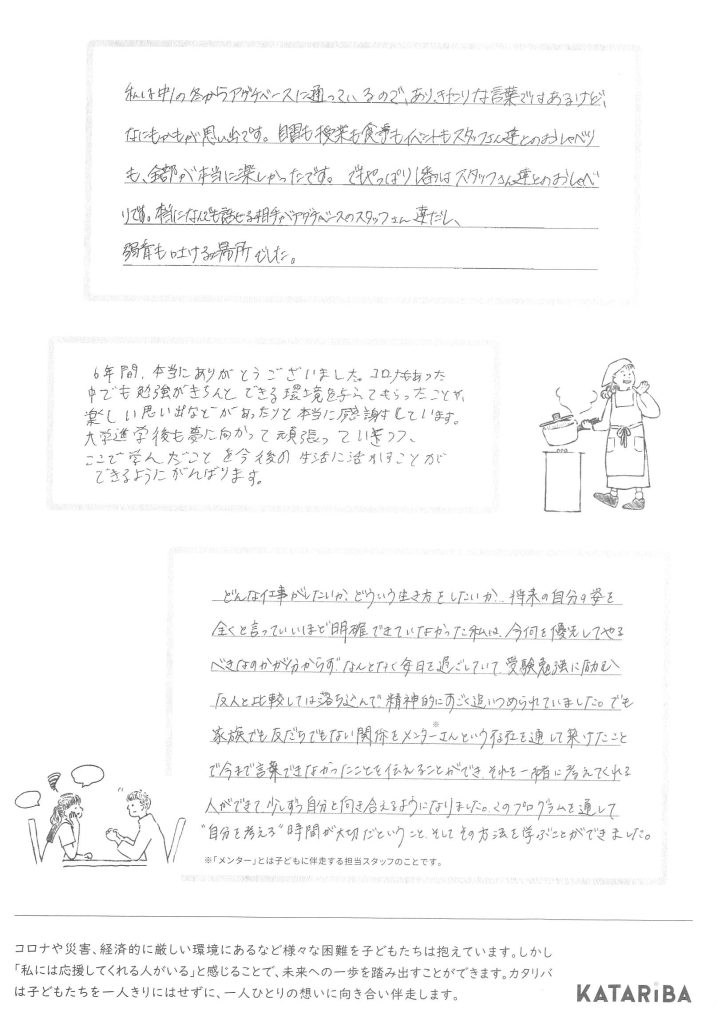 私は中1の冬からアダチベースに通っているので、ありきたりな言葉ではあるけど、
なにもかもが思い出です。自習も授業も食事もイベントもスタッフさん達とのおしゃべり
も、全部が本当に楽しかったです。でもやっぱり1番はスタッフさん達とのおしゃべ
りです。本当になんでも話せる相手がアダチベースのスタッフさん達だし、
弱音も吐ける場所でした。
6年間、本当にありがとうございました。コロナもあった
中でも勉強がきちんとできる環境を与えてもらったことや、
楽しい思い出などがあったりと本当に感謝しています。
大学進学後も夢に向かって頑張っていきつつ、
ここで学んだことを今後の生活に活かすことが
できるようにがんばります。
どんな仕事がしたいか、どういう生き方をしたいか…将来の自分の姿を
全くと言っていいほど明確できていなかった私は、今何を優先してやる
べきなのかが分からず、なんとなく毎日を過ごしていて、受験勉強に励む
友人と比較しては落ち込んで精神的にすごく追いつめられていました。でも
家族でも友だちでもない関係をメンターさん※という存在を通して築けたこと
で今まで言葉できなかったことを伝えることができ、それを一緒に考えてくれる
人ができて少しずつ自分と向き合えるようになりました。このプログラムを通して
"自分を考える"時間が大切だということ、そしてその方法を学ぶことができました。
※「メンター」とは子どもに伴走する担当スタッフのことです。
コロナや災害、経済的に厳しい環境にあるなど様々な困難を子どもたちは抱えています。しかし
「私には応援してくれる人がいる」と感じることで、未来への一歩を踏み出すことができます。カタリバ
は子どもたちを一人きりにはせずに、一人ひとりの想いに向き合い伴走します。
KATARiBA